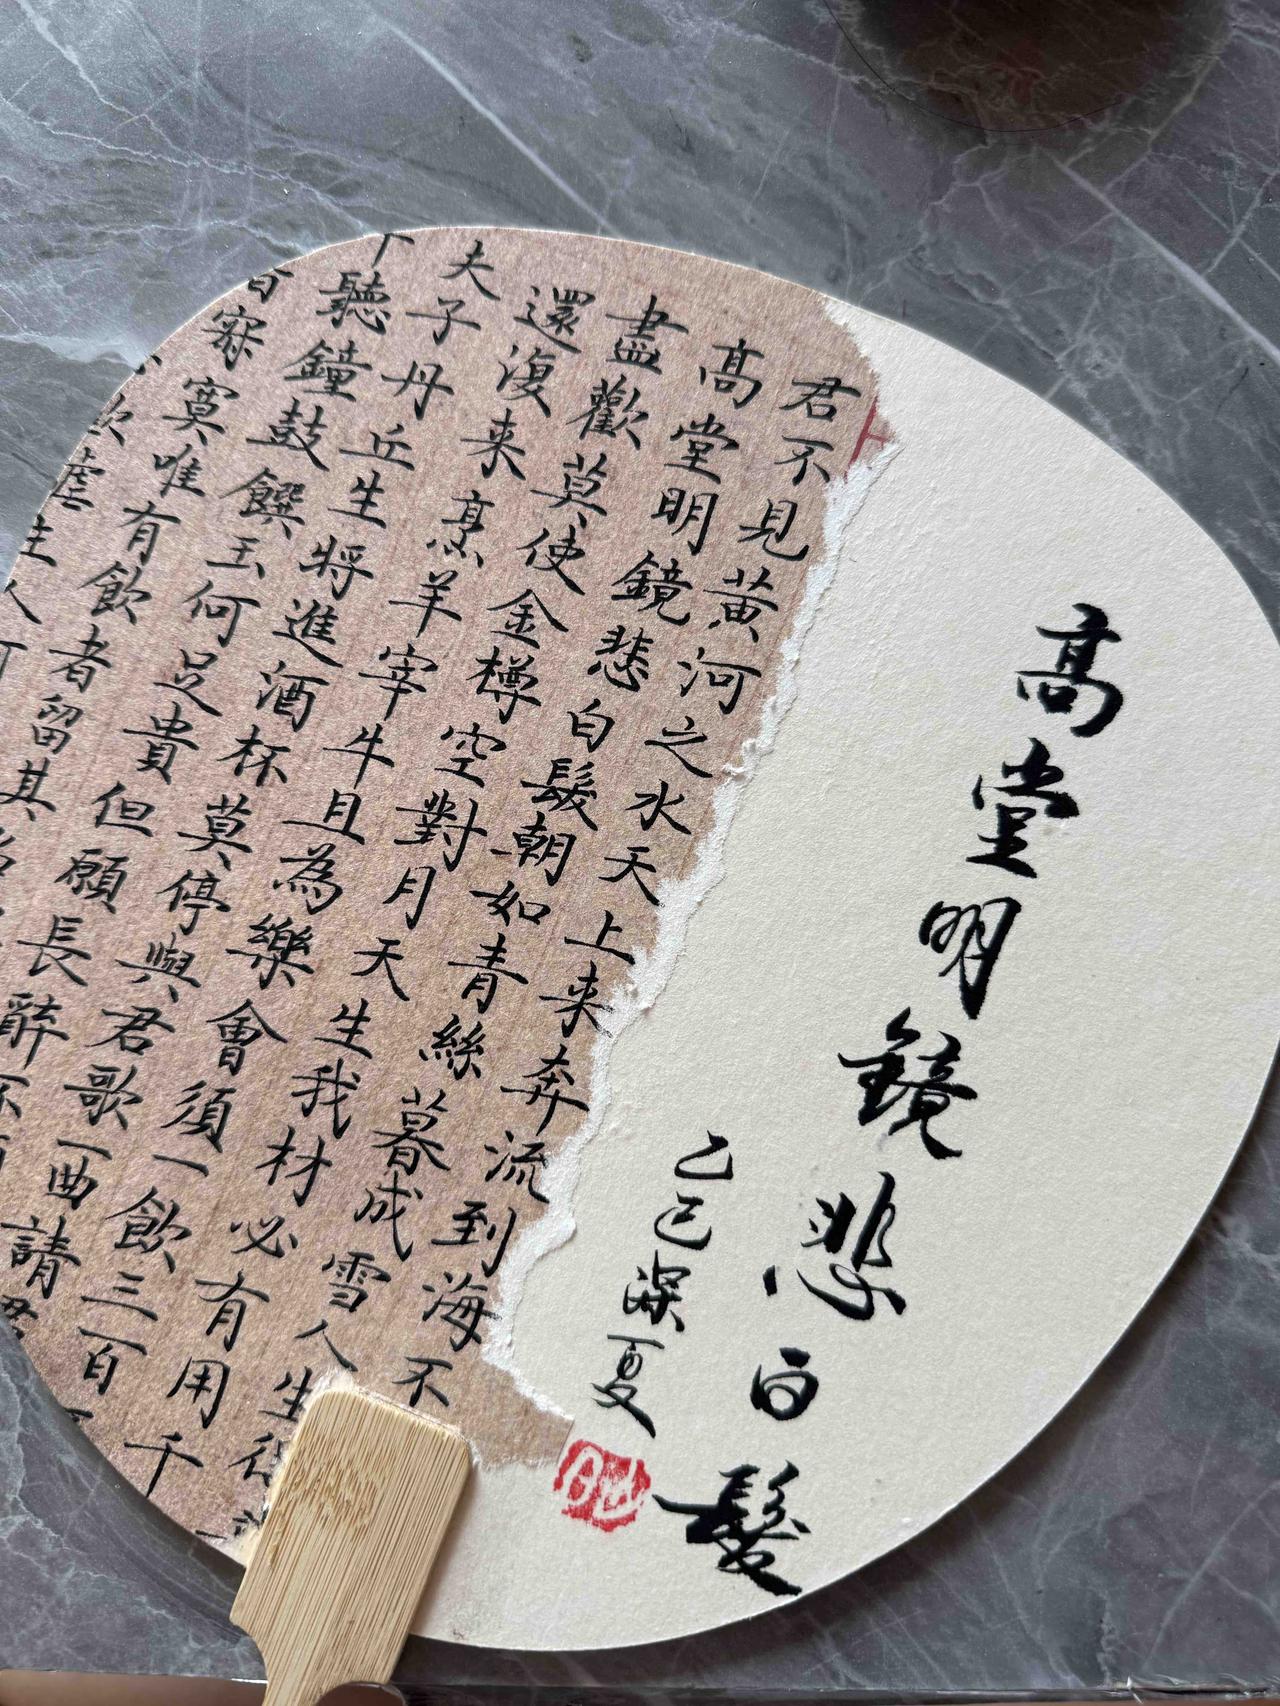 高堂明鏡悲白髮
乙巳深夏
君不見黃河之水天上来奔流到海不
高堂明鏡悲白髮朝如青絲暮成雪人生得
盡歡莫使金樽空對月天生我材必有用千
還復来烹羊宰牛且為樂會須一飲三百
夫子丹丘生將進酒杯莫停與君歌一曲請君
聽鐘鼓饌玉何足貴但願長醉不
皆寂寞唯有飲者留其名
主人